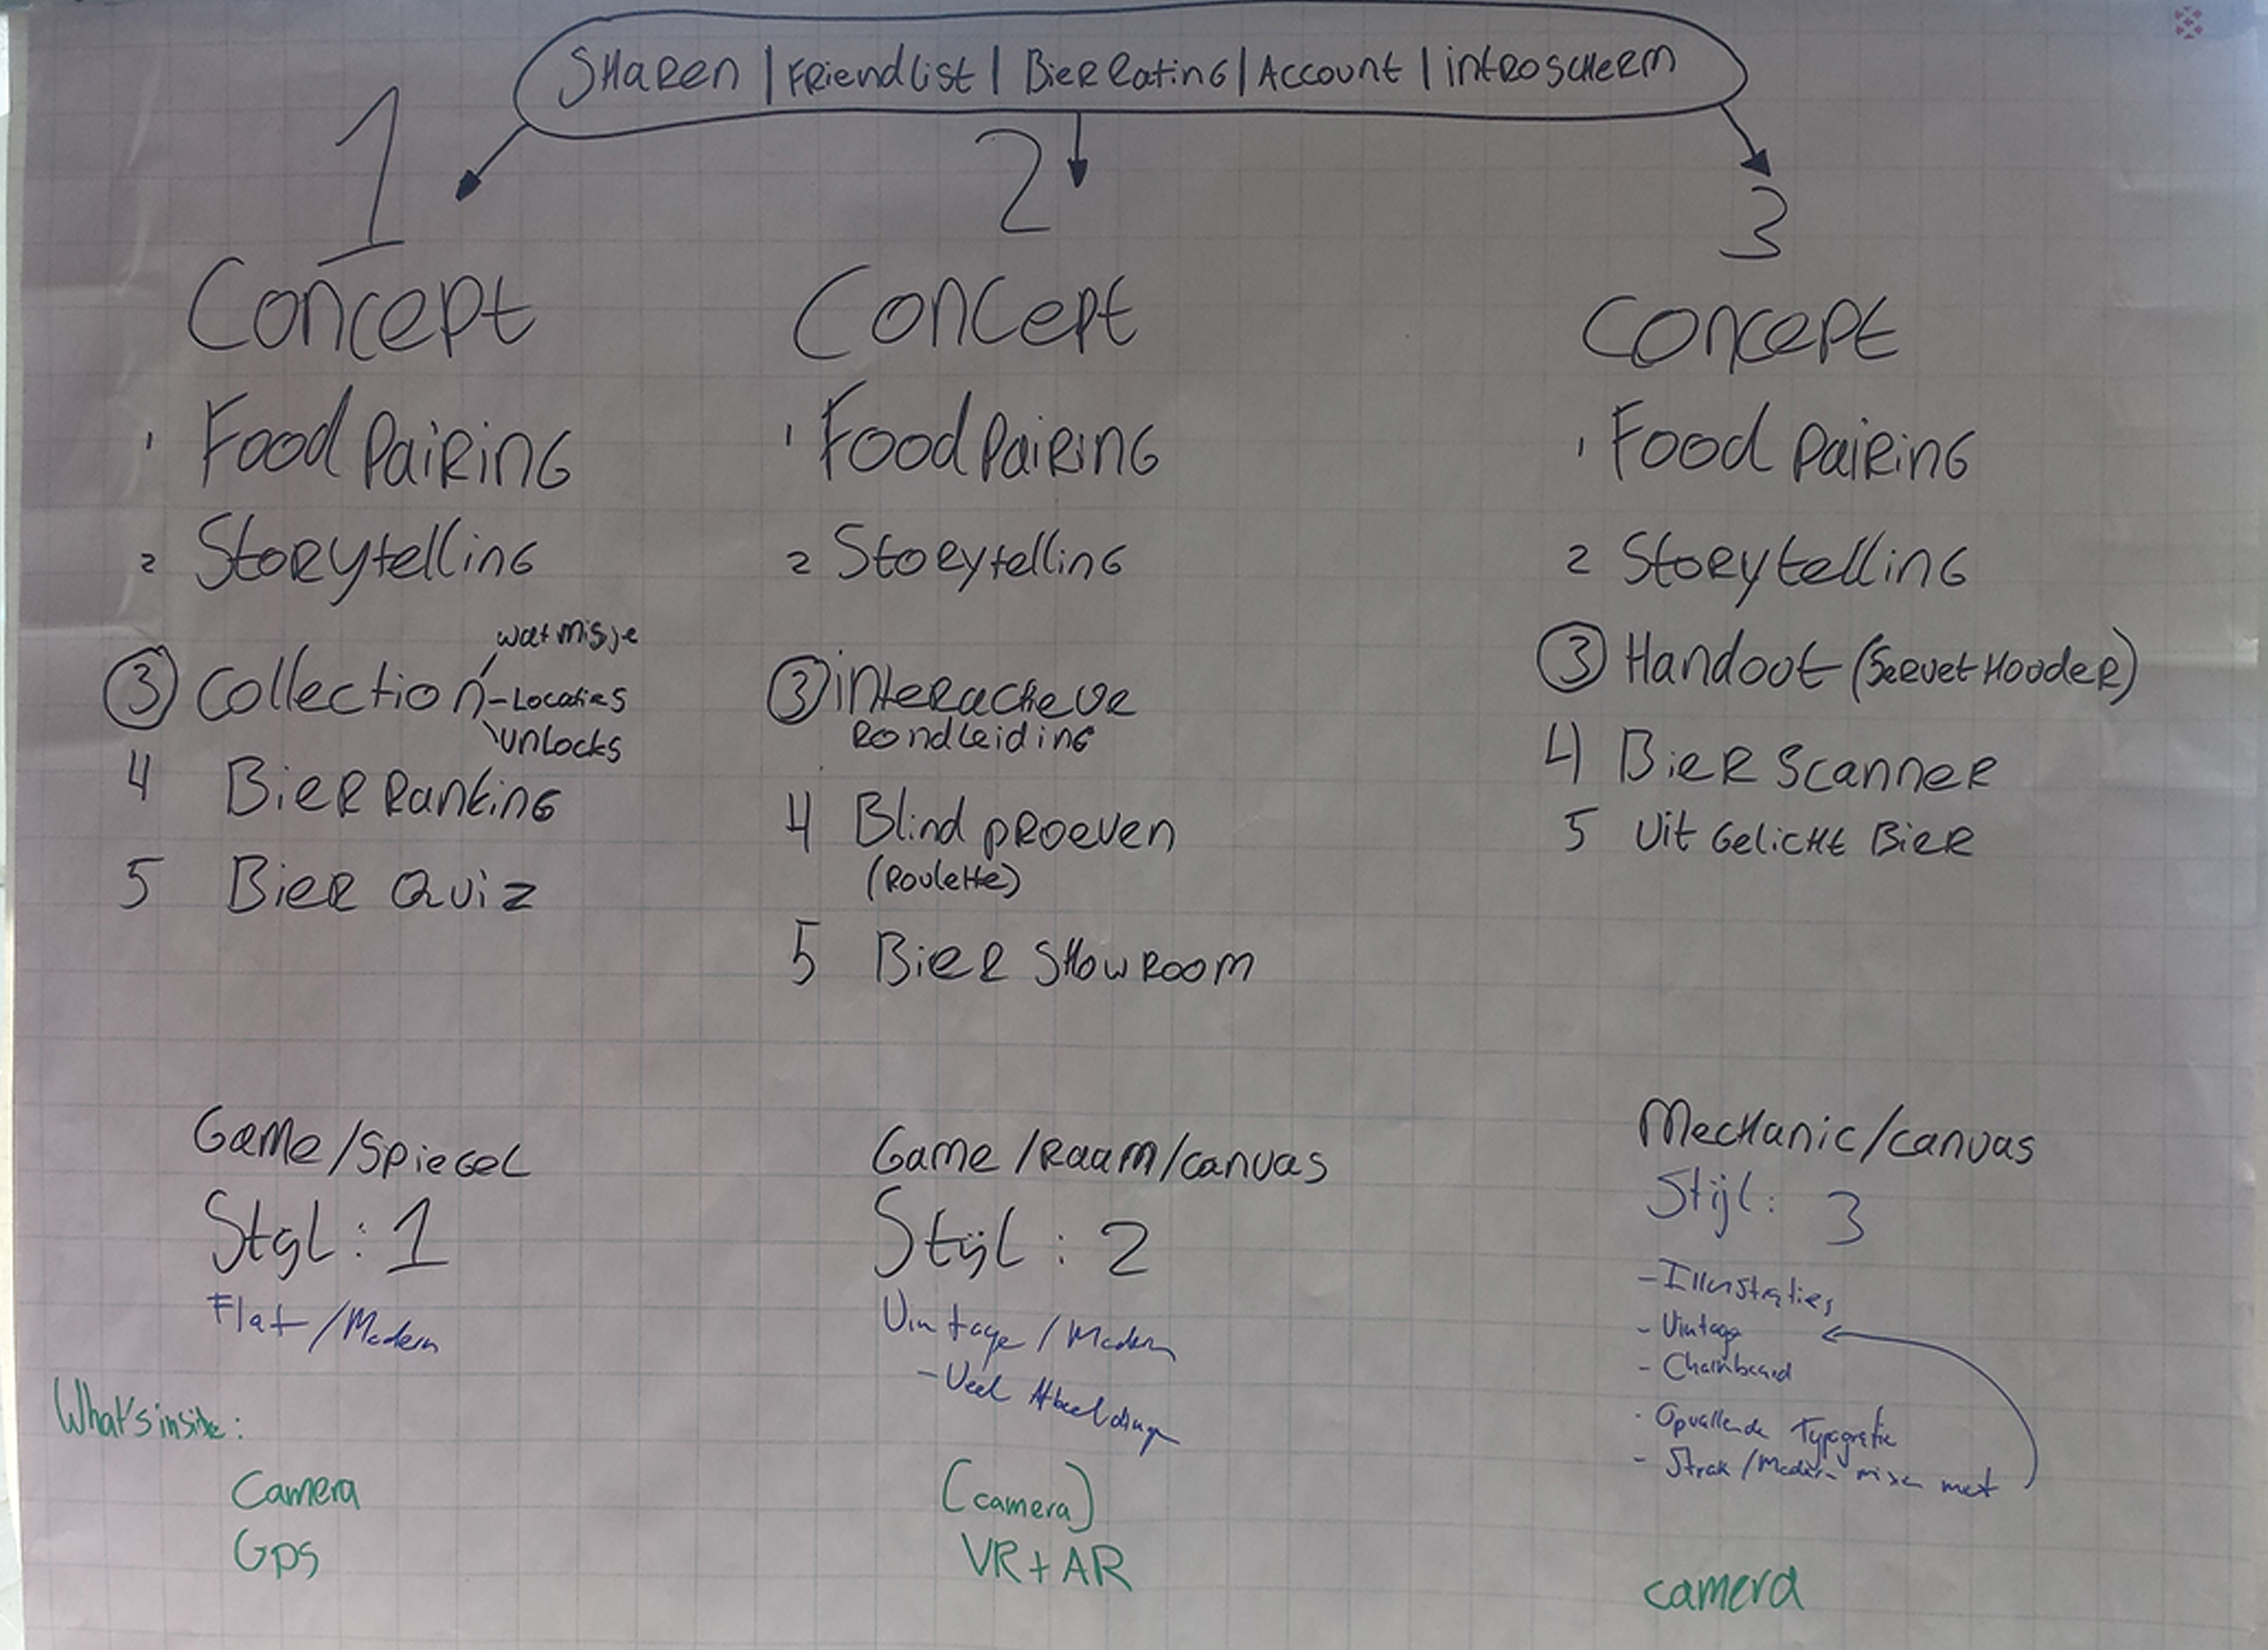 SHAREN | FRIENDLIST | BIER RATING | ACCOUNT | INTROSCHERM
1
Concept
1 Food PAIRING
2 STORYTELLING
3 Collection
wat mis je
- Locaties
unlocks
4 BIER RANKING
5 BIER QUIZ
Game/Spiegel
Stijl: 1
Flat/Modern
What's inside:
Camera
Gps
2
Concept
1 Food PAIRING
2 STORYTELLING
3 interactieve
RONDLEIDING
4 Blind PROEVEN
(Roulette)
5 BIER SHOWROOM
Game/RAAM/canvas
Stijl: 2
Vintage/Modern
- Veel Afbeeldingen
(camera)
VR + AR
3
Concept
1 Food PAIRING
2 STORYTELLING
3 Handout (SERVET HOUDER)
4 BIER SCANNER
5 Uit GELICHT BIER
Mechanic/canvas
Stijl: 3
- Illustraties
- Vintage
- Chalkboard
- Opvallende Typografie
- Strak/Modern mixen met
camera